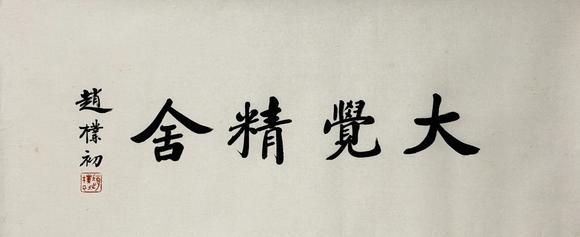 大覺精舍
趙樸初